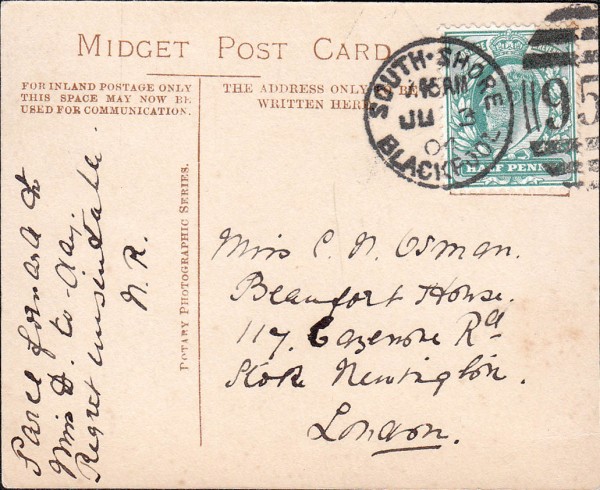 MIDGET POST CARD
FOR INLAND POSTAGE ONLY
THIS SPACE MAY NOW BE
USED FOR COMMUNICATION.
THE ADDRESS ONLY BE
WRITTEN HERE
SOUTH·SHORE
BLACKPOOL
JU 9
07
95
HALF PENN
ROTARY PHOTOGRAPHIC SERIES.
Parcel forward to
Miss D. to-day.
Regret unsuitable.
N. R.
Miss C. N. Osman.
Beaufort House.
117. Cazenove Rd
Stoke Newington.
London.